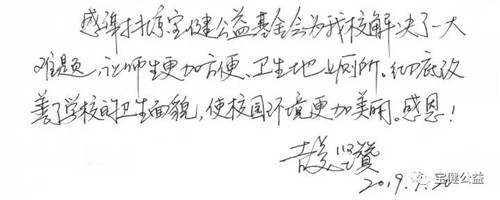 感谢抚宁宝健公益基金会为我校解决了一大
难题，让师生更加方便、卫生地上厕所。彻底改
善了学校的卫生面貌，使校园环境更加美丽。感恩！
2019.9.20
宝健公益